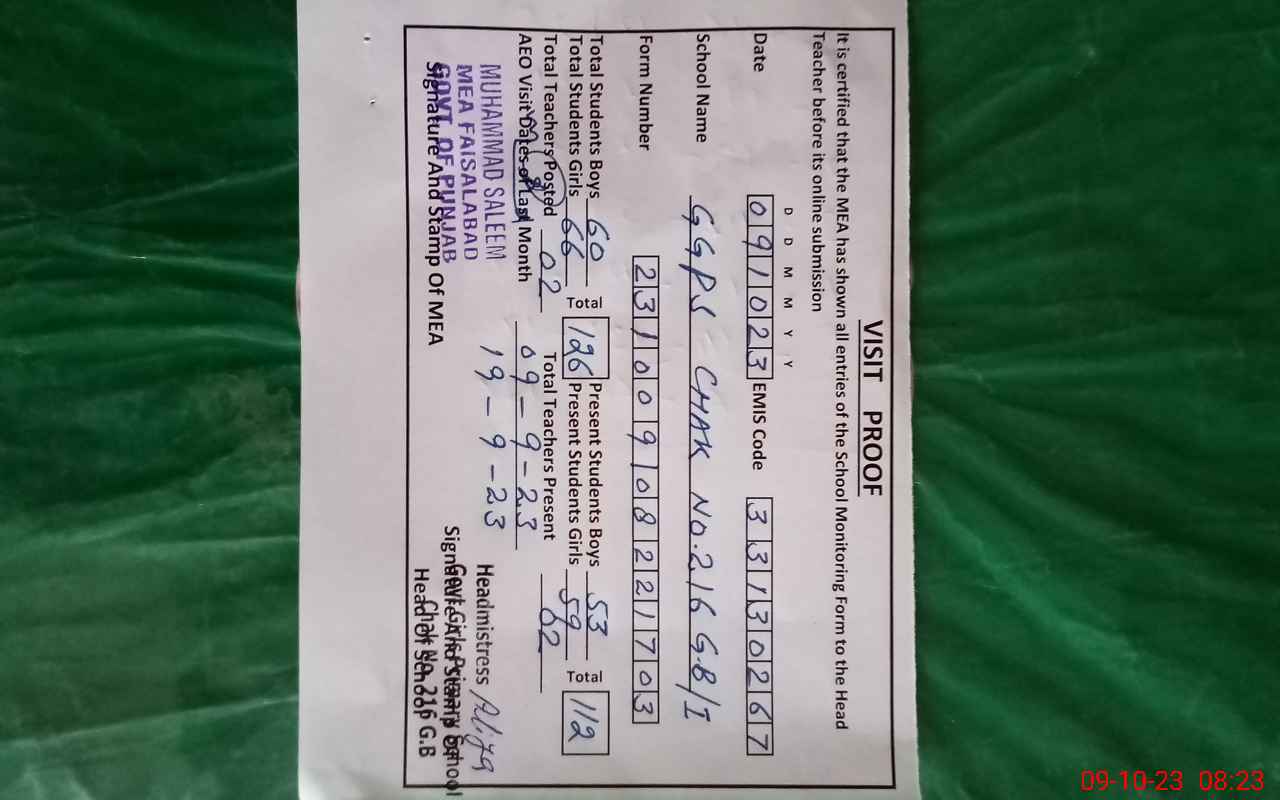 VISIT PROOF
It is certified that the MEA has shown all entries of the School Monitoring Form to the Head
Teacher before its online submission
D D M M Y Y
Date 091023 EMIS Code 33130267
School Name GGPS CHAK NO.216 G.B/I
Form Number 231009108221703
Total Students Boys 60 Present Students Boys 53
Total Students Girls 66 Total 126 Present Students Girls 59 Total 112
Total Teachers Posted 02 Total Teachers Present 02
AEO Visit Dates of Last Month 09-9-23
19-9-23
MUHAMMAD SALEEM
MEA FAISALABAD
GOVT. OF PUNJAB
Signature And Stamp Of MEA
Headmistress
Govt. Girls Primary School
Chak No. 216 G.B
Signature And Stamp Of
Head Of School
09-10-23 08:23